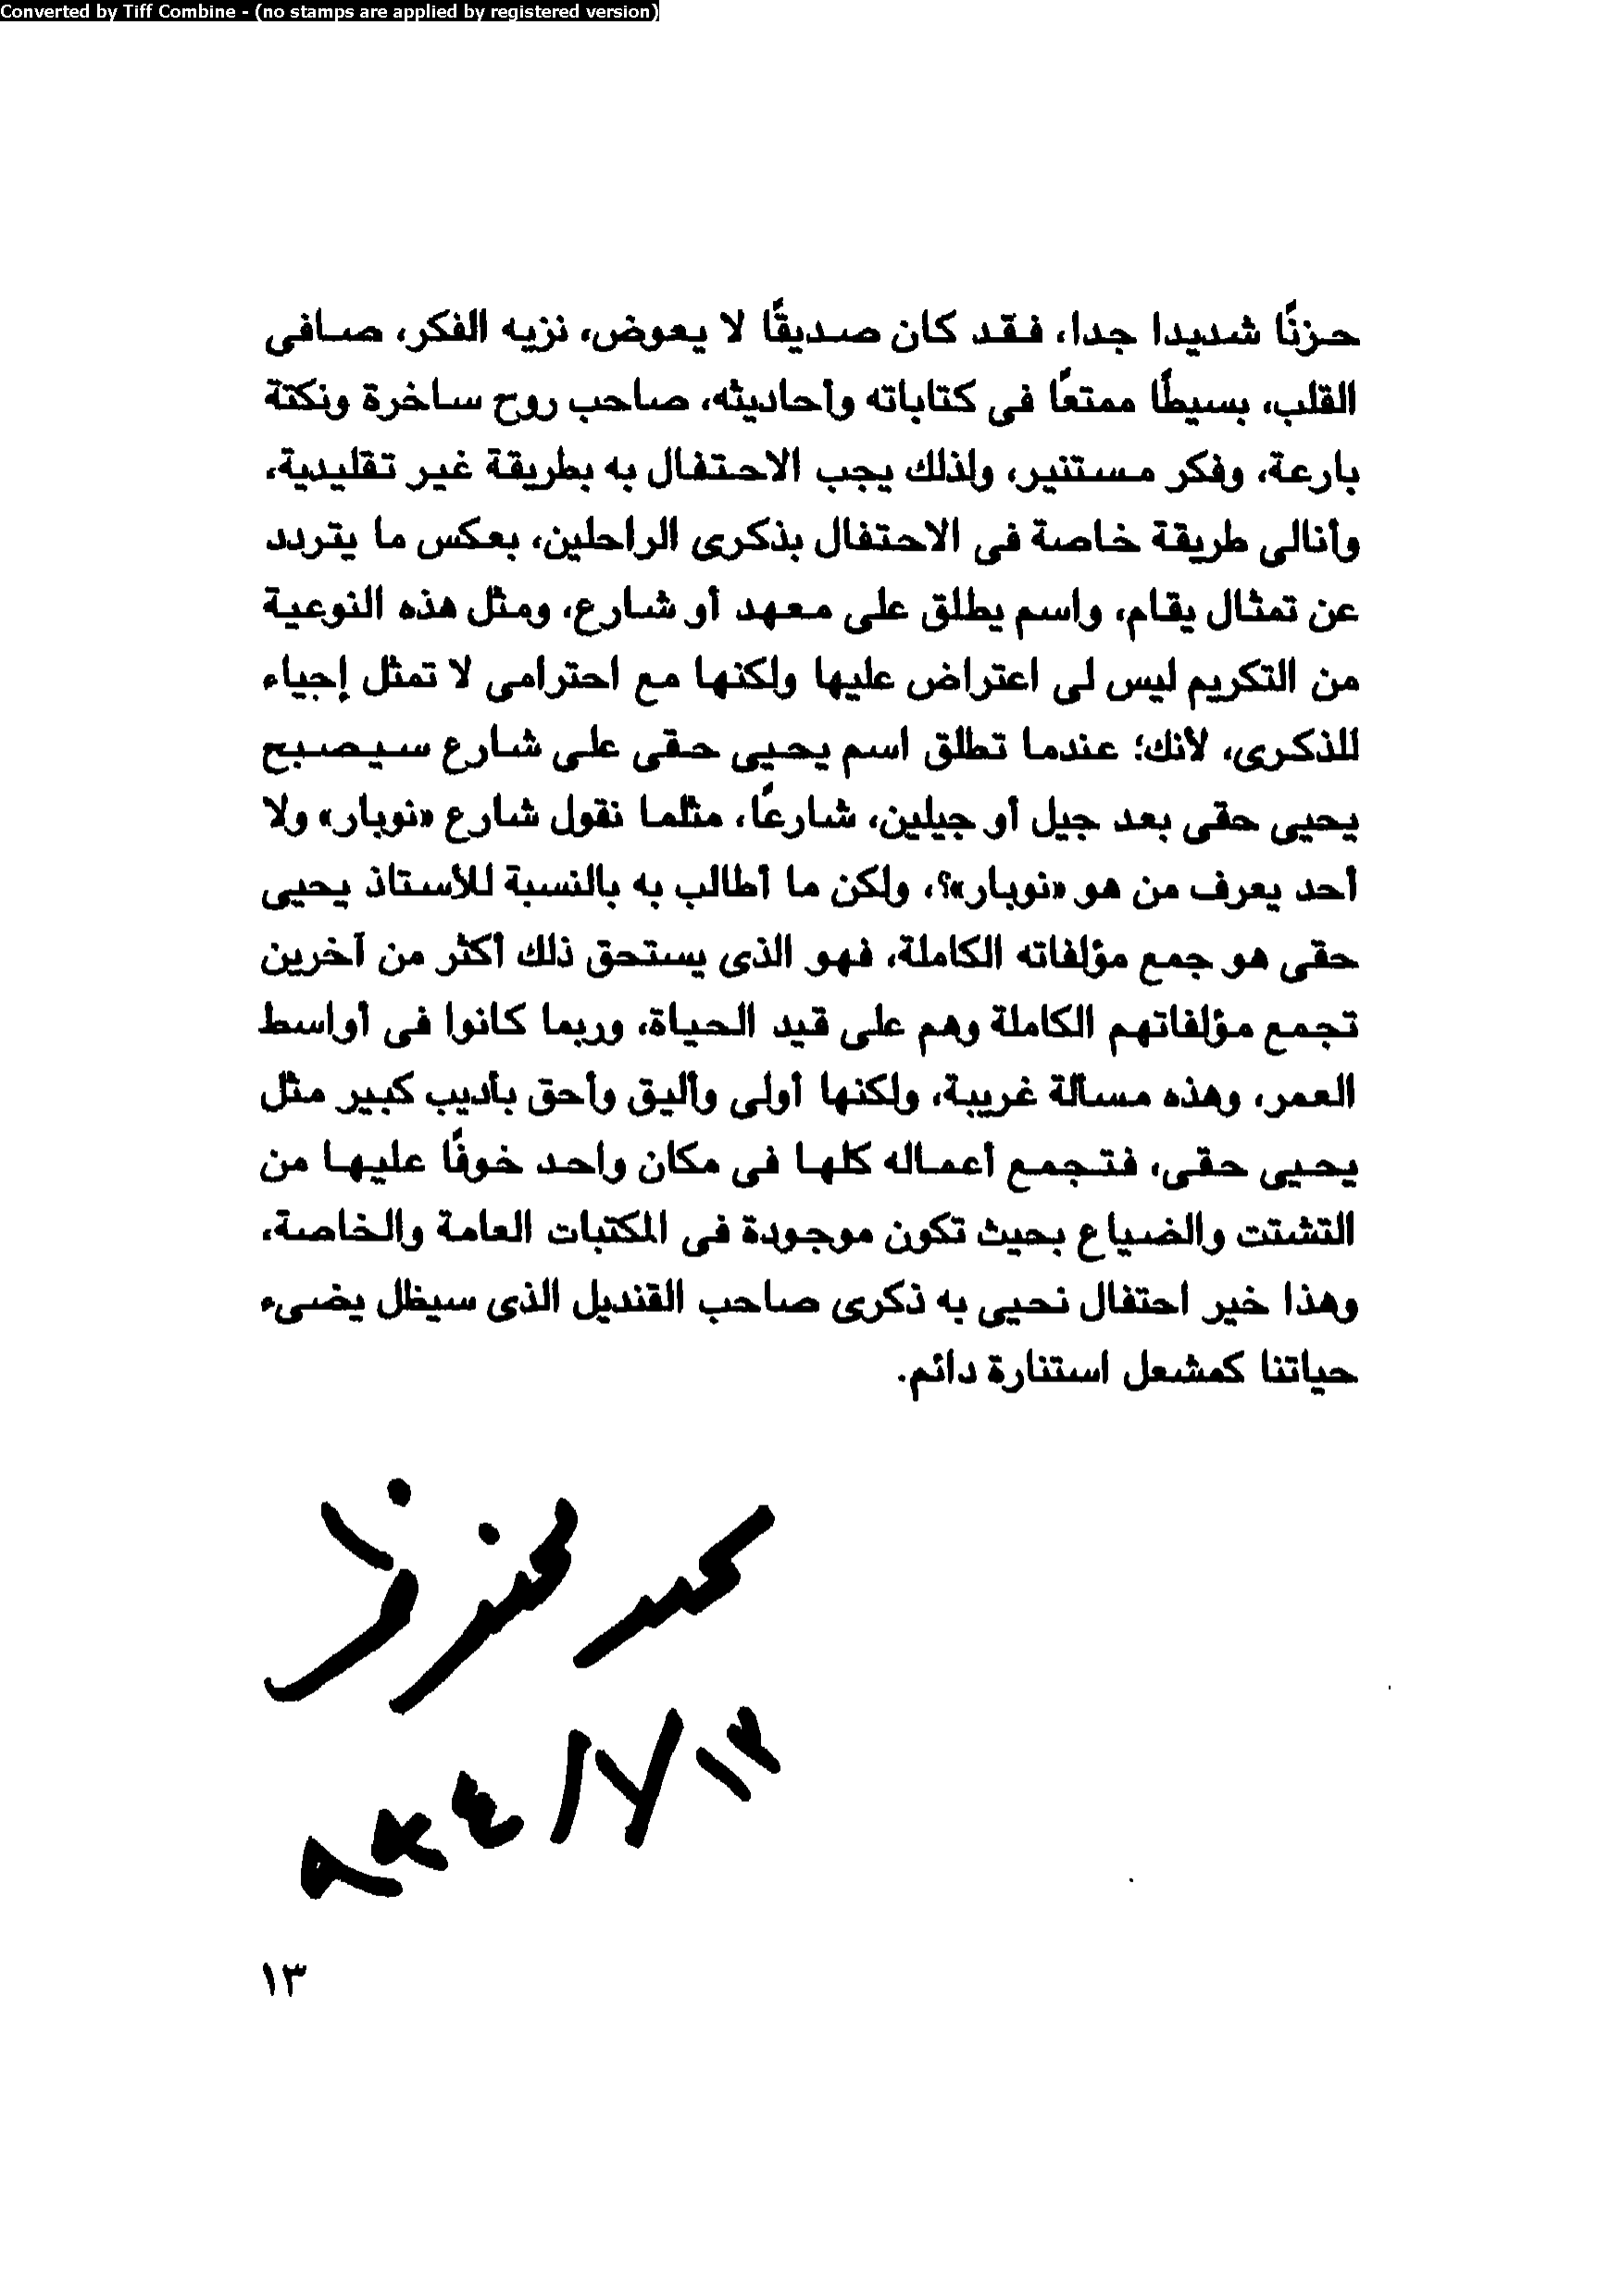 Converted by Tiff Combine - (no stamps are applied by registered version)
حزنًا شديدا جدا، فقد كان صديقًا لا يعوض، نزيه الفكر، صافى
القلب، بسيطًا ممتعًا فى كتاباته وأحاديثه، صاحب روح ساخرة ونكتة
بارعة، وفكر مستنير، ولذلك يجب الاحتفال به بطريقة غير تقليدية،
وأنالى طريقة خاصة فى الاحتفال بذكرى الراحلين، بعكس ما يتردد
عن تمثال يقام، واسم يطلق على معهد أو شارع، ومثل هذه النوعية
من التكريم ليس لى اعتراض عليها ولكنها مع احترامى لا تمثل إجياء
للذكرى، لأنك؛ عندما تطلق اسم يحيى حقى على شارع سيصبح
يحيى حقى بعد جيل أو جيلين، شارعًا، مثلما نقول شارع «نوبار» ولا
أحد يعرف من هو «نوبار»؟، ولكن ما أطالب به بالنسبة للأستاذ يحيى
حقى هو جمع مؤلفاته الكاملة، فهو الذى يستحق ذلك أكثر من آخرين
تجمع مؤلفاتهم الكاملة وهم على قيد الحياة، وربما كانوا فى أواسط
العمر، وهذه مسألة غريبة، ولكنها أولى وأليق وأحق بأديب كبير مثل
يحيى حقى، فتجمع أعماله كلها فى مكان واحد خوفًا عليها من
التشتت والضياع بحيث تكون موجودة فى المكتبات العامة والخاصة،
وهذا خير احتفال نحيى به ذكرى صاحب القنديل الذى سيظل يضىء
حياتنا كمشعل استنارة دائم.
١٣